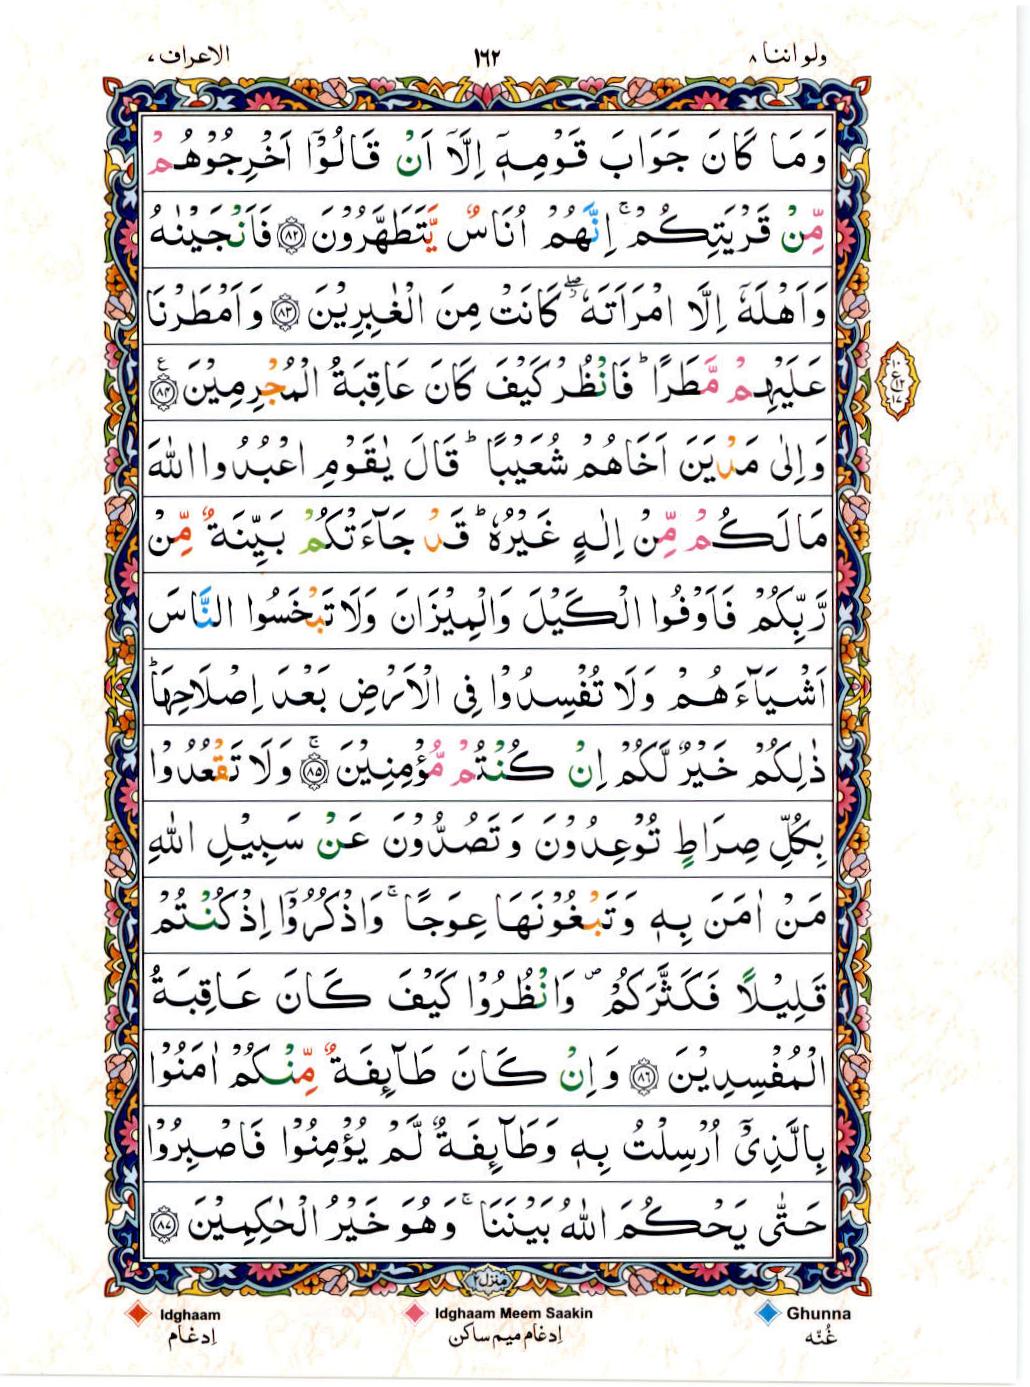 ولو اننا ٨
١٦٢
الاعراف ٧
وَمَا كَانَ جَوَابَ قَوْمِهٖۤ اِلَّاۤ اَنْ قَالُوْۤا اَخْرِجُوْهُمْ
مِّنْ قَرْيَتِكُمْ ۚ اِنَّهُمْ اُنَاسٌ يَّتَطَهَّرُوْنَ ﴿٨٢﴾ فَاَنْجَيْنٰهُ
وَاَهْلَهٗۤ اِلَّا امْرَاَتَهٗ ۖ كَانَتْ مِنَ الْغٰبِرِيْنَ ﴿٨٣﴾ وَاَمْطَرْنَا
عَلَيْهِمْ مَّطَرًا ؕ فَانْظُرْ كَيْفَ كَانَ عَاقِبَةُ الْمُجْرِمِيْنَ ﴿٨٤﴾ ع
وَاِلٰى مَدْيَنَ اَخَاهُمْ شُعَيْبًا ؕ قَالَ يٰقَوْمِ اعْبُدُوا اللّٰهَ
مَالَكُمْ مِّنْ اِلٰهٍ غَيْرُهٗ ؕ قَدْ جَآءَتْكُمْ بَيِّنَةٌ مِّنْ
رَّبِّكُمْ فَاَوْفُوا الْكَيْلَ وَالْمِيْزَانَ وَلَا تَبْخَسُوا النَّاسَ
اَشْيَآءَهُمْ وَلَا تُفْسِدُوْا فِى الْاَرْضِ بَعْدَ اِصْلَاحِهَا ؕ
ذٰلِكُمْ خَيْرٌ لَّكُمْ اِنْ كُنْتُمْ مُّؤْمِنِيْنَ ﴿٨٥﴾ ۚ وَلَا تَقْعُدُوْا
بِكُلِّ صِرَاطٍ تُوْعِدُوْنَ وَتَصُدُّوْنَ عَنْ سَبِيْلِ اللّٰهِ
مَنْ اٰمَنَ بِهٖ وَتَبْغُوْنَهَا عِوَجًا ۚ وَاذْكُرُوْۤا اِذْ كُنْتُمْ
قَلِيْلًا فَكَثَّرَكُمْ ۪ وَانْظُرُوْا كَيْفَ كَانَ عَاقِبَةُ
الْمُفْسِدِيْنَ ﴿٨٦﴾ وَاِنْ كَانَ طَآئِفَةٌ مِّنْكُمْ اٰمَنُوْا
بِالَّذِىْۤ اُرْسِلْتُ بِهٖ وَطَآئِفَةٌ لَّمْ يُؤْمِنُوْا فَاصْبِرُوْا
حَتّٰى يَحْكُمَ اللّٰهُ بَيْنَنَا ۚ وَهُوَ خَيْرُ الْحٰكِمِيْنَ ﴿٨٧﴾
١٠
ع
١٢
١٧
منزل ٢
Idghaam
Idghaam Meem Saakin
Ghunna
اِدغام
اِدغام ميم ساكن
غُنّه